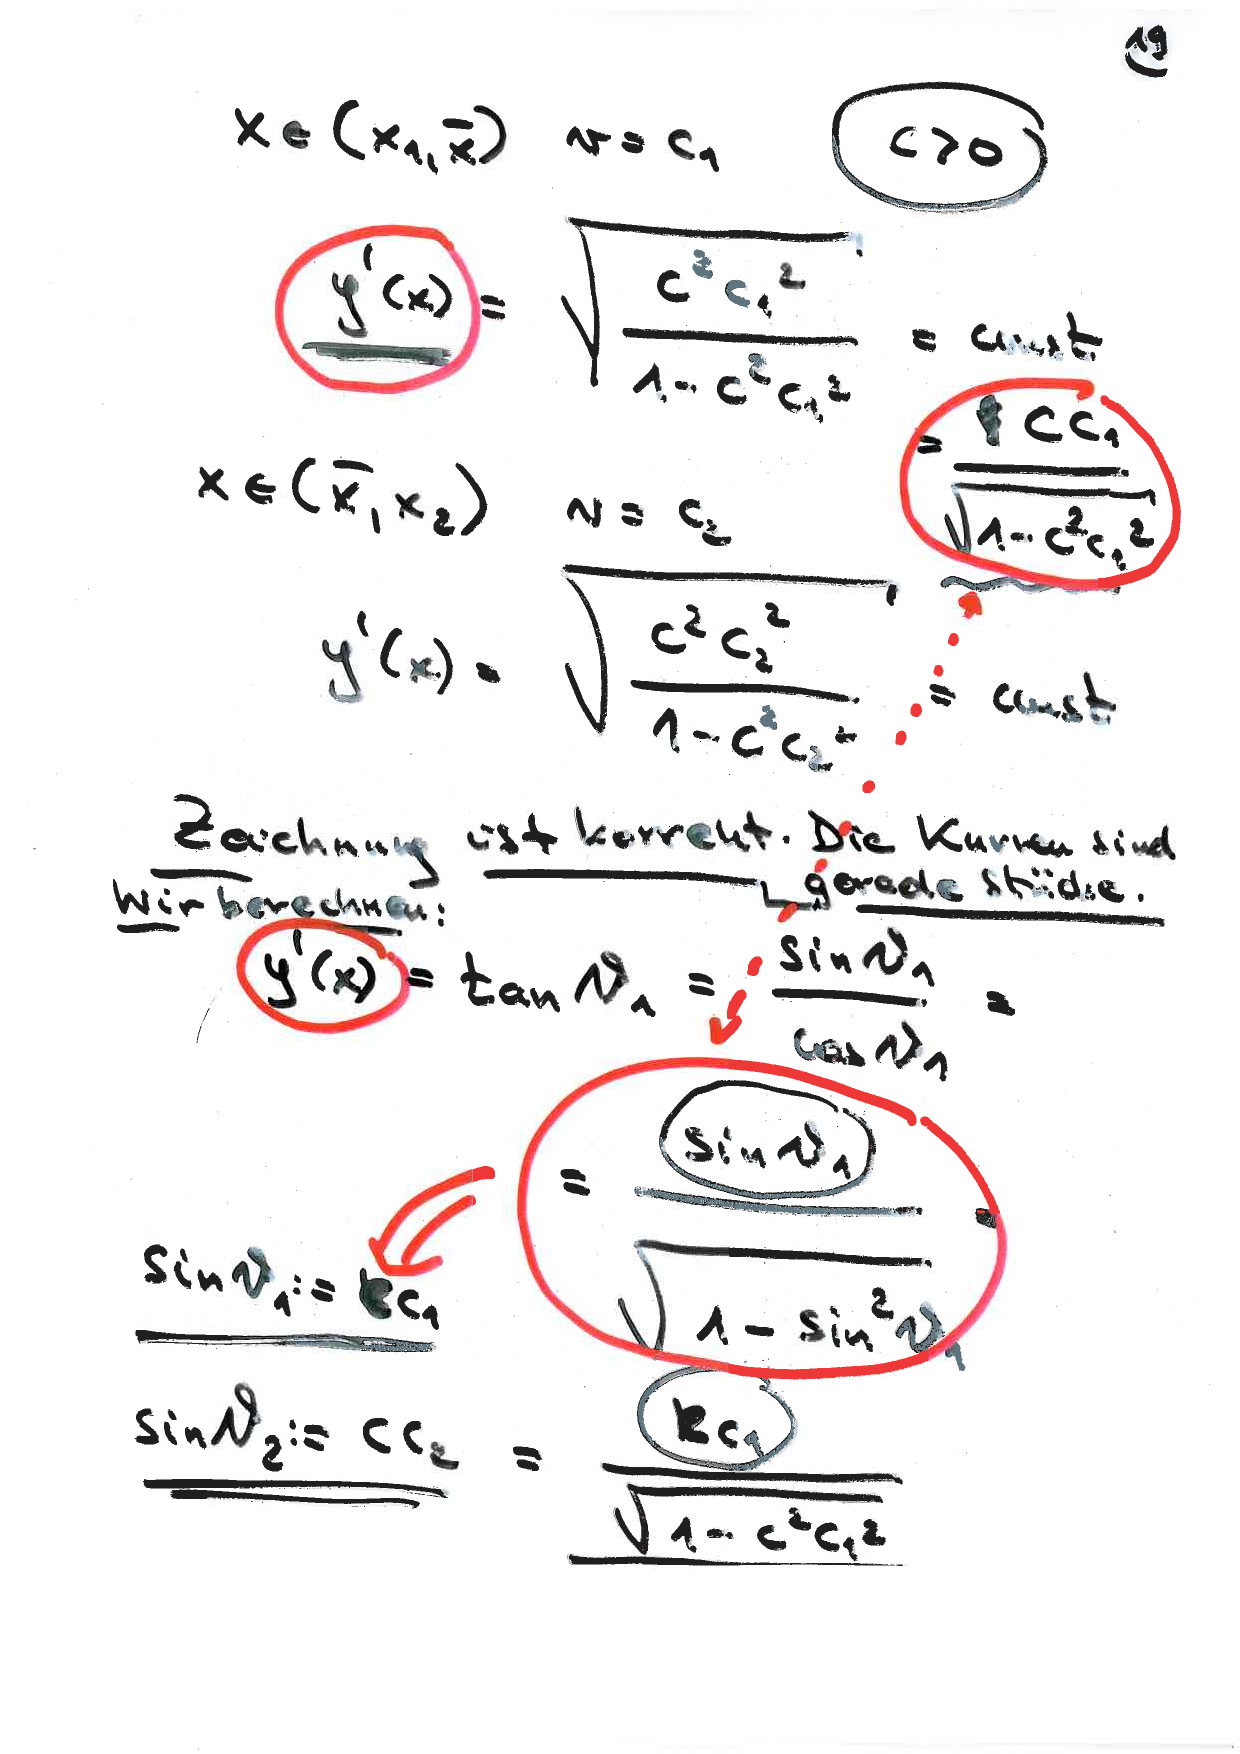 19
x ∈ (x₁, x̄) v = c₁ c > 0
y'(x) = √(c² c₁² / (1 - c² c₁²)) = const.
= c c₁ / √(1 - c² c₁²)
x ∈ (x̄, x₂) v = c₂
y'(x) = √(c² c₂² / (1 - c² c₂²)) = const.
Zeichnung ist korrekt. Die Kurven sind
gerade Stücke.
Wir berechnen:
y'(x) = tan ϑ₁ = sin ϑ₁ / cos ϑ₁ =
= sin ϑ₁ / √(1 - sin² ϑ₁) =
sin ϑ₁ := c c₁
sin ϑ₂ := c c₂ = c c₁ / √(1 - c² c₁²)